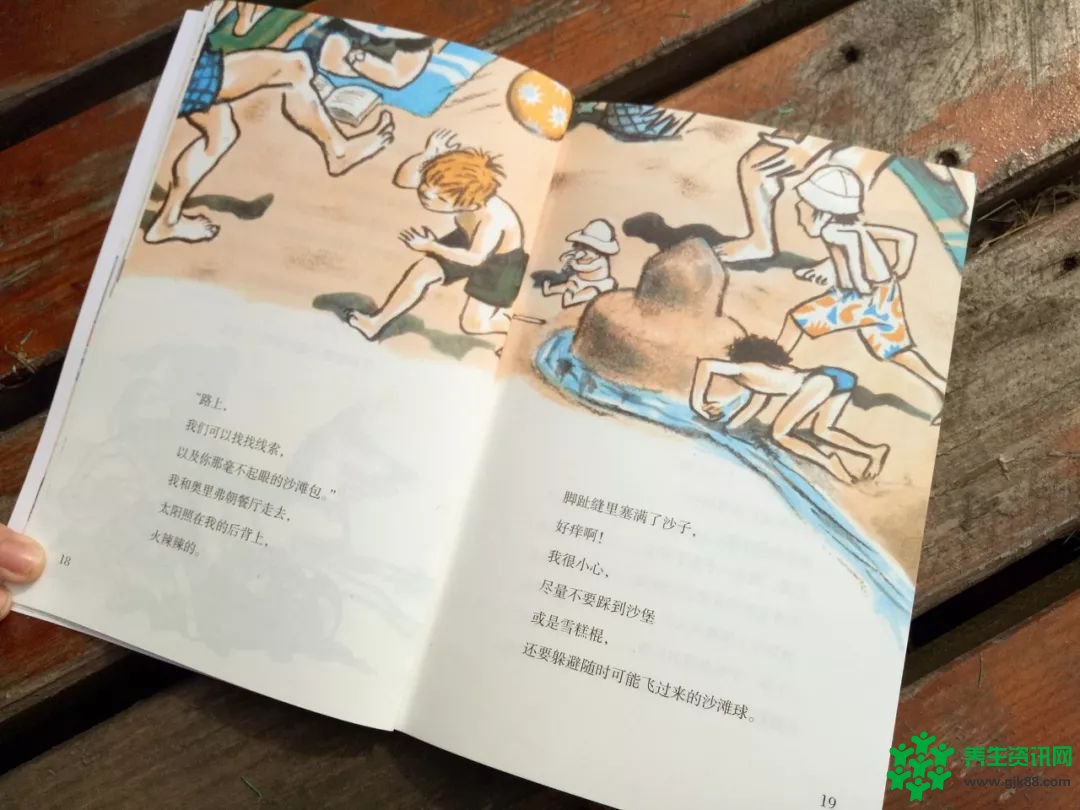 “路上，
我们可以找找线索，
以及你那毫不起眼的沙滩包。”
我和奥里弗朝餐厅走去，
太阳照在我的后背上，
火辣辣的。
18
脚趾缝里塞满了沙子，
好痒啊！
我很小心，
尽量不要踩到沙堡
或是雪糕棍，
还要躲避随时可能飞过来的沙滩球。
19
养生资讯网
www.gjk88.com